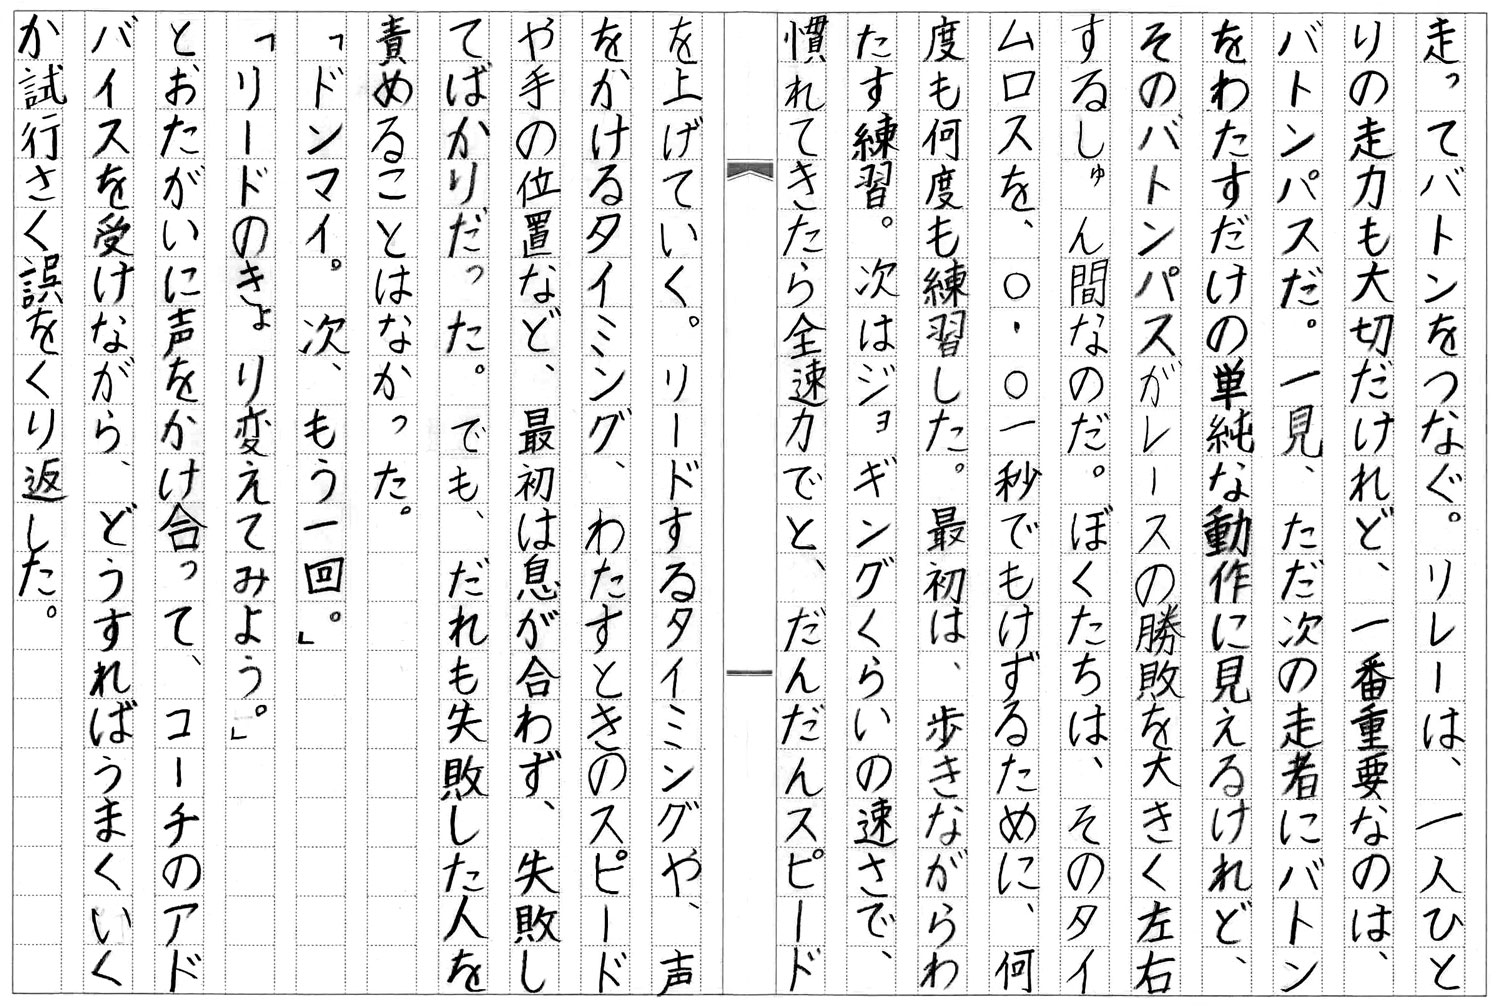 走ってバトンをつなぐ。リレーは、一人ひと
りの走力も大切だけれど、一番重要なのは、
バトンパスだ。一見、ただ次の走者にバトン
をわたすだけの単純な動作に見えるけれど、
そのバトンパスがレースの勝敗を大きく左右
するしゅん間なのだ。ぼくたちは、そのタイ
ムロスを、〇・〇一秒でもけずるために、何
度も何度も練習した。最初は、歩きながらわ
たす練習。次はジョギングくらいの速さで、
慣れてきたら全速力でと、だんだんスピード
を上げていく。リードするタイミングや、声
をかけるタイミング、わたすときのスピード
や手の位置など、最初は息が合わず、失敗し
てばかりだった。でも、だれも失敗した人を
責めることはなかった。
「ドンマイ。次、もう一回。」
「リードのきょり変えてみよう。」
とおたがいに声をかけ合って、コーチのアド
バイスを受けながら、どうすればうまくいく
か試行さく誤をくり返した。